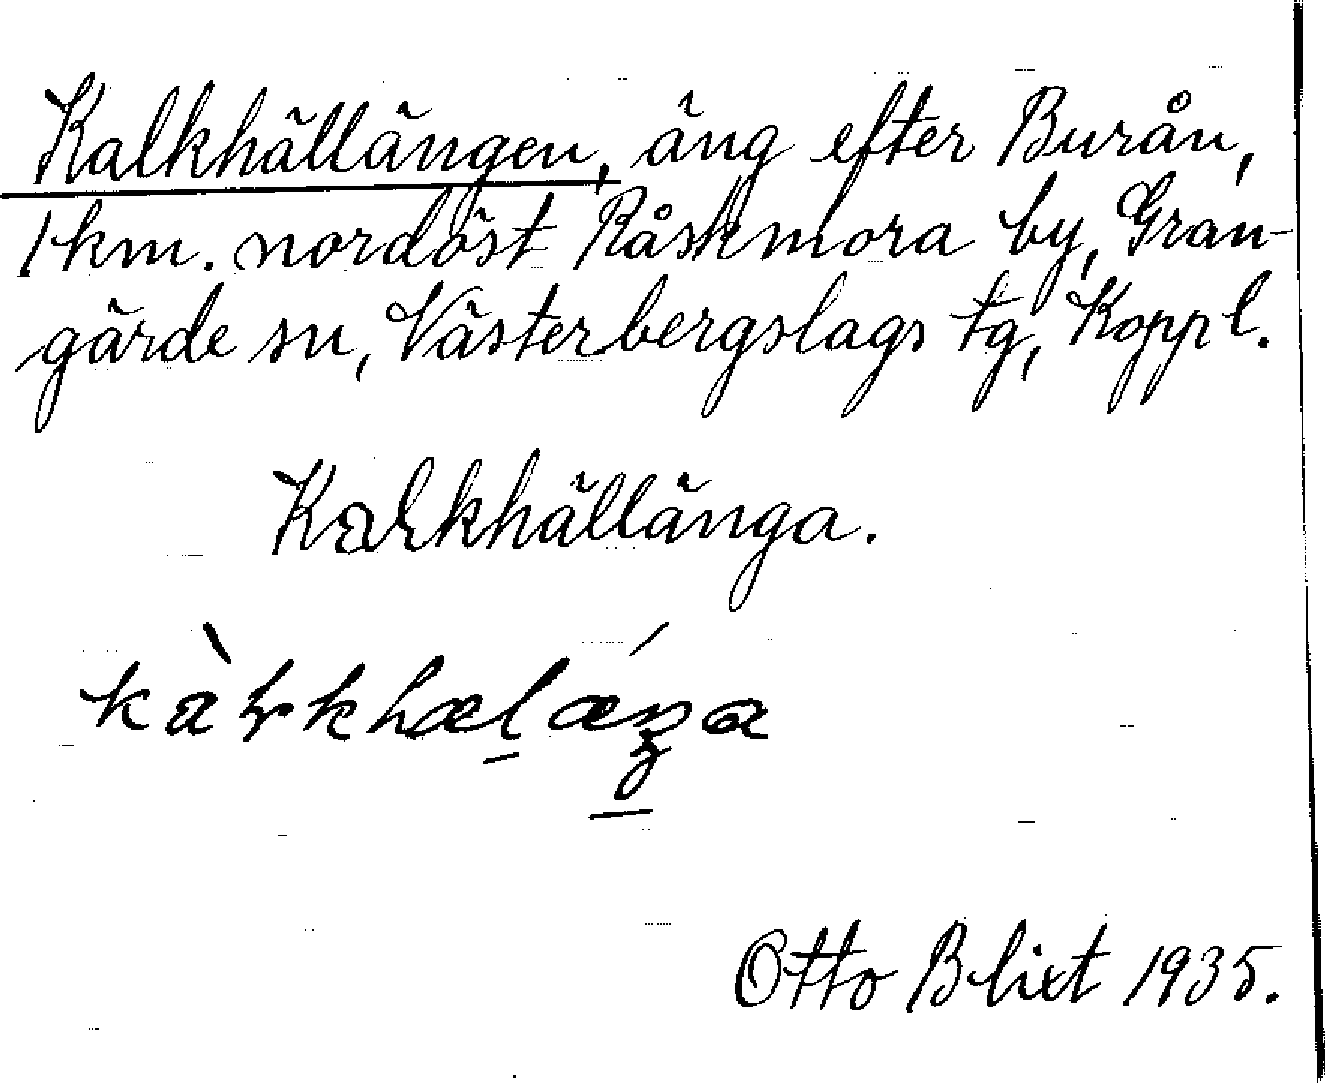 Kalkhällängen, äng efter Burån,
1 km. nordöst Råskmora by, Gran-
gärde sn, Västerbergslags tg, Koppl.
Kaɽkhällänga.
kàɽkhælǽŋa
Otto Blixt 1935.